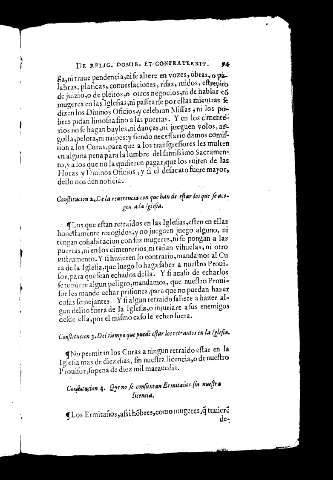 DE RELIG. DOMIB. ET CONFRATERNIT. 94
sia, ni traue pendencia, ni se altere en vozes, obras, o pa-
labras, platicas, conuersaciones, risas, ruidos, estrepito
de juizio, o de pleitos, o otros negocios, ni de hablar cõ
mugeres en las Iglesias, ni passearse por ellas mientras se
dizen los Diuinos Oficios, y celebran Missas, ni los po-
bres pidan limosna sino a las puertas. Y en los cimente-
rios no se hagan bayles, ni danças, ni jueguen bolos, ar-
golla, pelota, ni naipes: y siendo necessario damos comis-
sion a los Curas, para que a los transgressores les multen
en alguna pena para la lumbre del santissimo Sacramen-
to, y a los que no la quisieren pagar, que los quiten de las
Horas y Diuinos Oficios, y si el desacato fuere mayor,
dello nos den noticia.
Constitucion 2. De la reuerencia con que han de estar los que se aco-
gen a la Iglesia.
¶ Los que estan retraidos en las Iglesias, esten en ellas
honestamente recogidos, y no jueguen juego alguno, ni
tengan conuersacion con las mugeres, ni se pongan a las
puertas, ni en los cimenterios, ni tañan vihuelas, ni otro
instrumento. Y si hizieren lo contrario, mandamos al Cu
ra de la Iglesia, que luego lo haga saber a nuestro Proui-
sor, para que sean echados della. Y si acaso de echarlos
se temiere algun peligro, mandamos, que nuestro Proui-
sor les mande echar prisiones, para que no puedan hazer
cosas semejantes. Y si algun retraido saliere a hazer al-
gun delito fuera de la Iglesia, o injuriare a sus enemigos
desde ella, por el mismo caso le echen fuera.
Constitucion 3. Del tiempo que puede estar los retraidos en la Iglesia.
¶ No permitan los Curas a ningun retraido estar en la
Iglesia mas de diez dias, sin nuestra licencia, o de nuestro
Prouisor, so pena de diez mil marauedis.
Constitucion 4. Que no se consientan Ermitaños sin nuestra
licencia.
¶ Los Ermitaños, assi hõbres, como mugeres, q̃ traxerẽ
de-